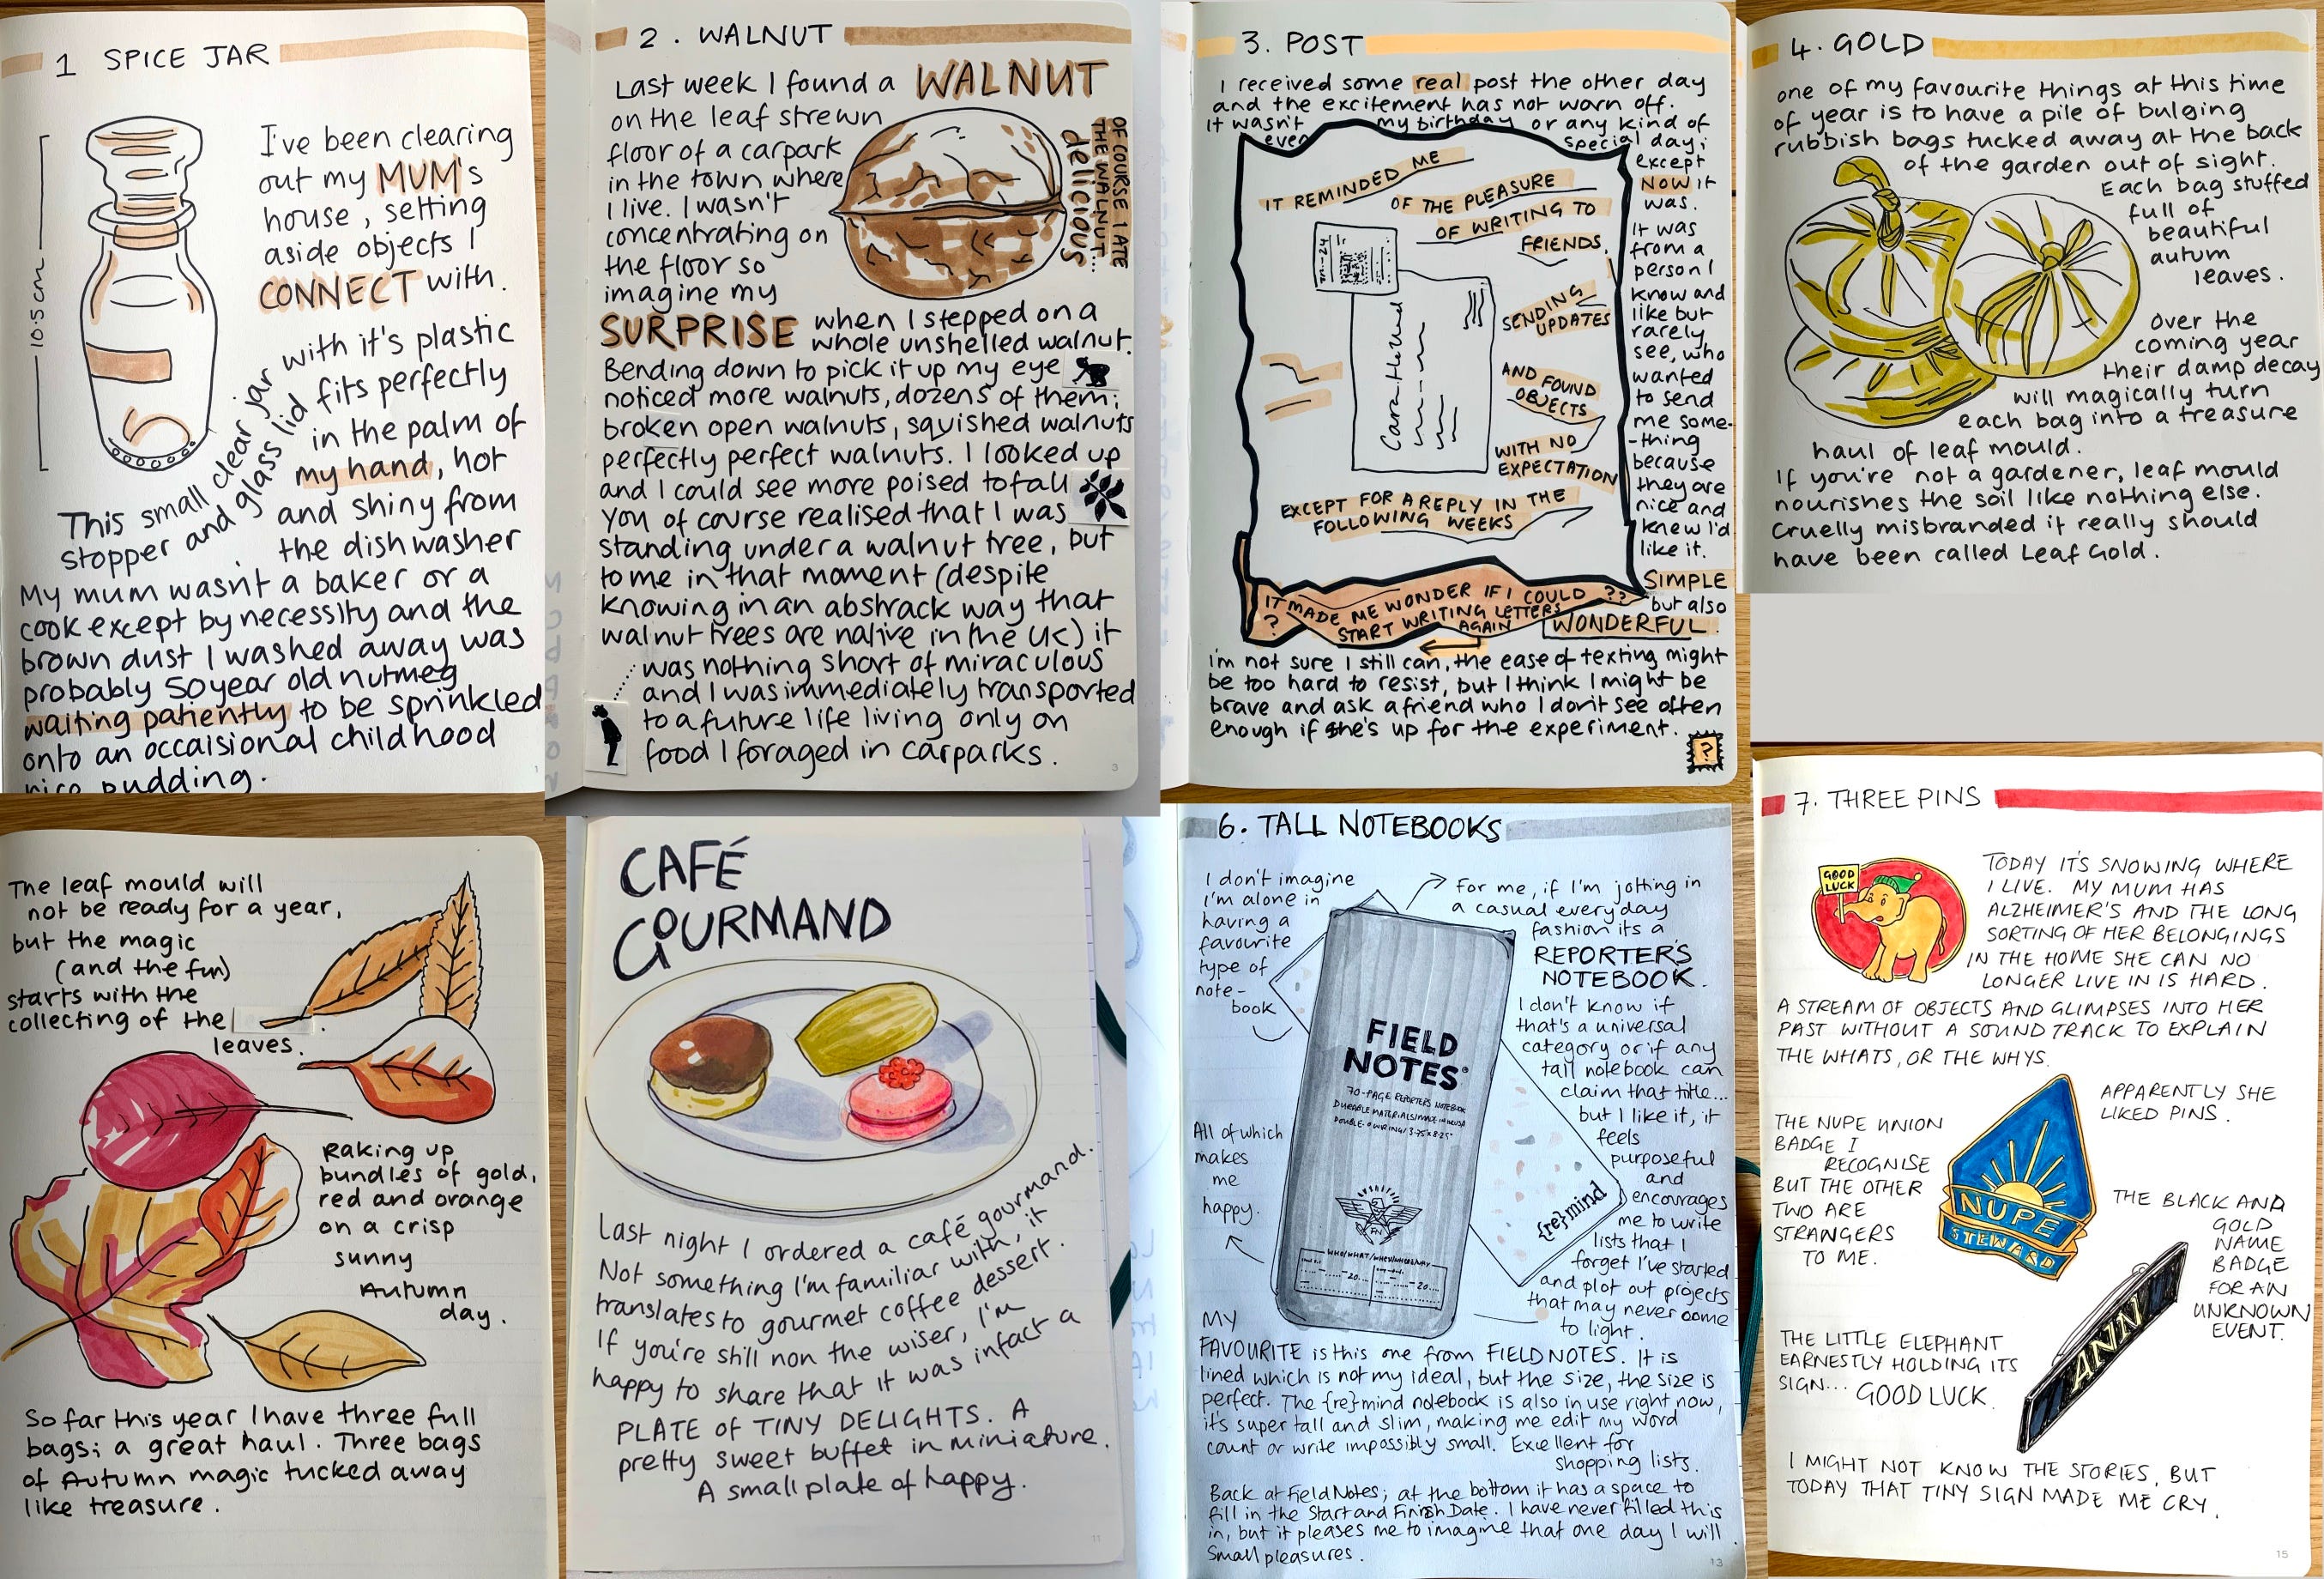 1 SPICE JAR
10.5cm
I've been clearing
out my MUM's
house, setting
aside objects I
CONNECT with.
This small clear jar with it's plastic
stopper and glass lid fits perfectly
in the palm of
my hand, hot
and shiny from
the dishwasher
My mum wasn't a baker or a
cook except by necessity and the
brown dust I washed away was
probably 50year old nutmeg
waiting patiently to be sprinkled
onto an occaisional childhood
rice pudding.
1
2. WALNUT
Last week I found a WALNUT
on the leaf strewn
floor of a carpark
in the town where
I live. I wasn't
concentrating on
the floor so
imagine my
SURPRISE when I stepped on a
whole unshelled walnut.
Bending down to pick it up my eye
noticed more walnuts, dozens of them;
broken open walnuts, squished walnuts
perfectly perfect walnuts. I looked up
and I could see more poised to fall
You of course realised that I was
standing under a walnut tree, but
to me in that moment (despite
knowing in an abstrack way that
walnut trees are native in the UK) it
was nothing short of miraculous
and I was immediately transported
to a future life living only on
food I foraged in carparks.
OF COURSE I ATE
THE WALNUT...
delicious
3
3. POST
I received some real post the other day
and the excitement has not worn off.
It wasn't my birthday or any kind of
even special day;
except
NOW it
was.
It was
from a
person I
know and
like but
rarely
see, who
wanted
to send
me some-
-thing
because
they are
nice and
knew I'd
like it.
SIMPLE
but also
WONDERFUL.
IT REMINDED ME
OF THE PLEASURE
OF WRITING TO
FRIENDS,
SENDING
UPDATES
AND FOUND
OBJECTS
WITH NO
EXPECTATION
EXCEPT FOR A REPLY IN THE
FOLLOWING WEEKS
IT MADE ME WONDER IF I COULD ??
? START WRITING LETTERS
AGAIN
i'm not sure I still can, the ease of texting might
be too hard to resist, but I think I might be
brave and ask a friend who I don't see often
enough if she's up for the experiment.
?
4. GOLD
one of my favourite things at this time
of year is to have a pile of bulging
rubbish bags tucked away at the back
of the garden out of sight.
Each bag stuffed
full of
beautiful
autum
leaves.
Over the
coming year
their damp decay
will magically turn
each bag into a treasure
haul of leaf mould.
If you're not a gardener, leaf mould
nourishes the soil like nothing else.
Cruelly misbranded it really should
have been called Leaf Gold.
The leaf mould will
not be ready for a year,
but the magic
(and the fun)
starts with the
collecting of the
leaves.
Raking up
bundles of gold,
red and orange
on a crisp
sunny
Autumn
day.
So far this year I have three full
bags; a great haul. Three bags
of Autumn magic tucked away
like treasure.
CAFÉ
GOURMAND
Last night I ordered a café gourmand.
Not something I'm familiar with, it
translates to gourmet coffee dessert.
If you're still non the wiser, I'm
happy to share that it was infact a
PLATE OF TINY DELIGHTS. A
pretty sweet buffet in miniature.
A small plate of happy.
11
6. TALL NOTEBOOKS
I don't imagine
I'm alone in
having a
favourite
type of
note-
book
For me, if I'm jotting in
a casual everyday
fashion its a
REPORTER'S
NOTEBOOK.
I don't know if
that's a universal
category or if any
tall notebook can
claim that title...
but I like it, it
feels
purposeful
and
encourages
me to write
lists that I
forget I've started
and plot out projects
that may never come
to light.
All of which
makes
me
happy.
FIELD
NOTES
70-PAGE REPORTER'S NOTEBOOK
DURABLE MATERIALS/MADE IN USA
DOUBLE-O WIRING/3.75x8.25"
WHO/WHAT/WHEN/WHERE/WHY
{re}mind
MY
FAVOURITE is this one from FIELD NOTES. It is
lined which is not my ideal, but the size, the size is
perfect. The {re}mind notebook is also in use right now,
it's super tall and slim, making me edit my word
count or write impossibly small. Excellent for
shopping lists.
Back at Field Notes; at the bottom it has a space to
fill in the Start and Finish Date. I have never filled this
in, but it pleases me to imagine that one day I will
Small pleasures.
13
7. THREE PINS
GOOD
LUCK
TODAY IT'S SNOWING WHERE
I LIVE. MY MUM HAS
ALZHEIMER'S AND THE LONG
SORTING OF HER BELONGINGS
IN THE HOME SHE CAN NO
LONGER LIVE IN IS HARD.
A STREAM OF OBJECTS AND GLIMPSES INTO HER
PAST WITHOUT A SOUND TRACK TO EXPLAIN
THE WHATS, OR THE WHYS.
APPARENTLY SHE
LIKED PINS.
THE NUPE UNION
BADGE I
RECOGNISE
BUT THE OTHER
TWO ARE
STRANGERS
TO ME.
NUPE
STEWARD
THE BLACK AND
GOLD
NAME
BADGE
FOR AN
UNKNOWN
EVENT.
ANN
THE LITTLE ELEPHANT
EARNESTLY HOLDING ITS
SIGN... GOOD LUCK.
I MIGHT NOT KNOW THE STORIES, BUT
TODAY THAT TINY SIGN MADE ME CRY.
15